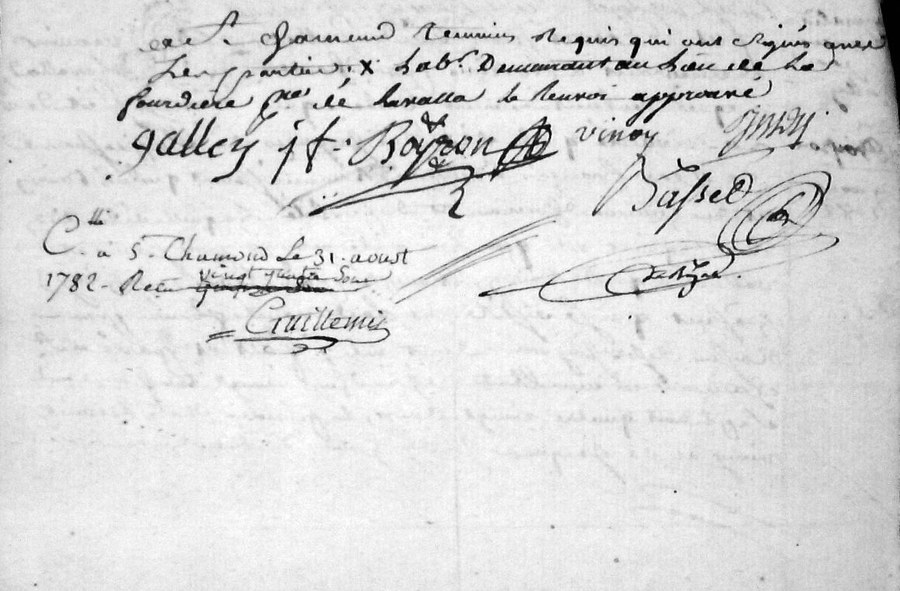 a St. Chamond temoins Requis qui ont signés avec
les parties. X hab.t Demeurant au Lieu de la
fourdiere p.sse de Lavalla le renvoi approuvé
galley jf. Boyron vinoy
Basset
C.lé à S. Chamond Le 31. aoust
1782. Reçu vingt quatre sous
Guillemin